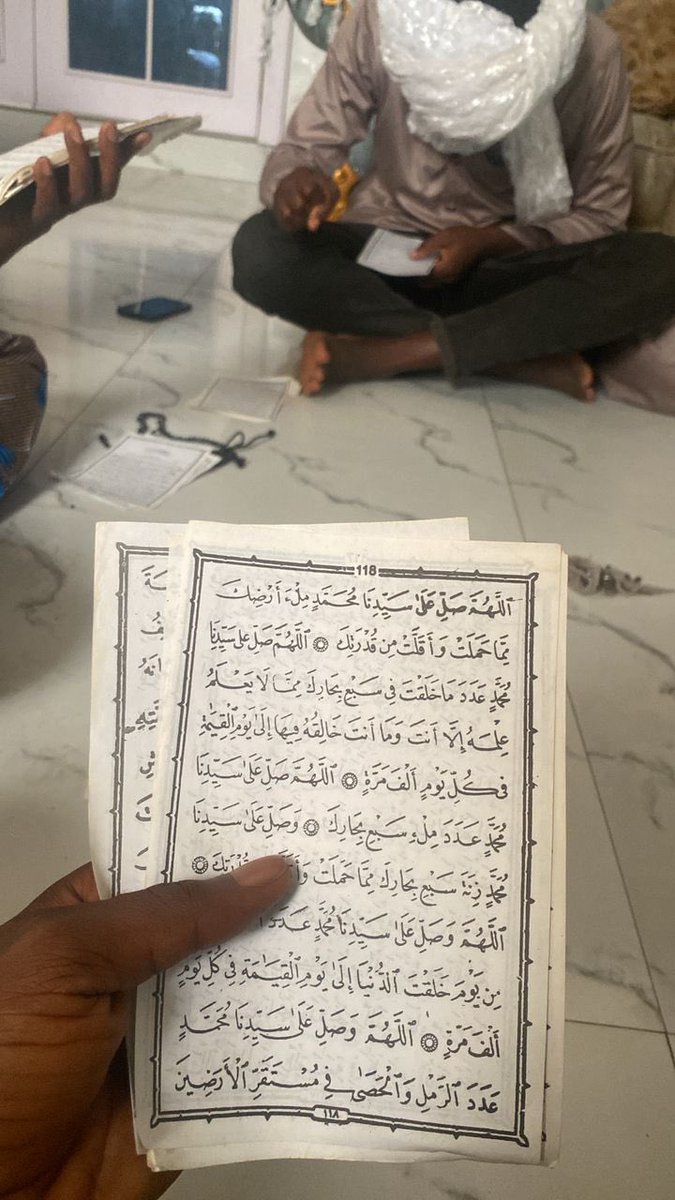 118
اَللَّهُمَّ صَلِّ عَلَىٰ سَيِّدِنَا مُحَمَّدٍ مِلْءَ أَرْضِكَ
مِمَّا حَمَلَتْ وَأَقَلَّتْ مِن قُدْرَتِكَ ۞ اَللَّهُمَّ صَلِّ عَلَىٰ سَيِّدِنَا
مُحَمَّدٍ عَدَدَ مَا خَلَقْتَ فِى سَبْعِ بِحَارِكَ مِمَّا لَا يَعْلَمُ
عِلْمَهُ إِلَّا أَنتَ وَمَا أَنتَ خَالِقُهُ فِيهَا إِلَىٰ يَوْمِ الْقِيَٰمَةِ
فِى كُلِّ يَوْمٍ أَلْفَ مَرَّةٍ ۞ اَللَّهُمَّ صَلِّ عَلَىٰ سَيِّدِنَا
مُحَمَّدٍ عَدَدَ مِلْءِ سَبْعِ بِحَارِكَ ۞ وَصَلِّ عَلَىٰ سَيِّدِنَا
مُحَمَّدٍ زِنَةَ سَبْعِ بِحَارِكَ مِمَّا حَمَلَتْ قُدْرَتِكَ ۞
اَللَّهُمَّ وَصَلِّ عَلَىٰ سَيِّدِنَا مُحَمَّدٍ عَدَدَ
مِن يَوْمِ خَلَقْتَ الدُّنْيَا إِلَىٰ يَوْمِ الْقِيَامَةِ فِى كُلِّ يَوْمٍ
أَلْفَ مَرَّةٍ ۞ اَللَّهُمَّ وَصَلِّ عَلَىٰ سَيِّدِنَا مُحَمَّدٍ
عَدَدَ الرَّمْلِ وَالْحَصَىٰ فِى مُسْتَقَرِّ الْأَرَضِينَ
١١٨